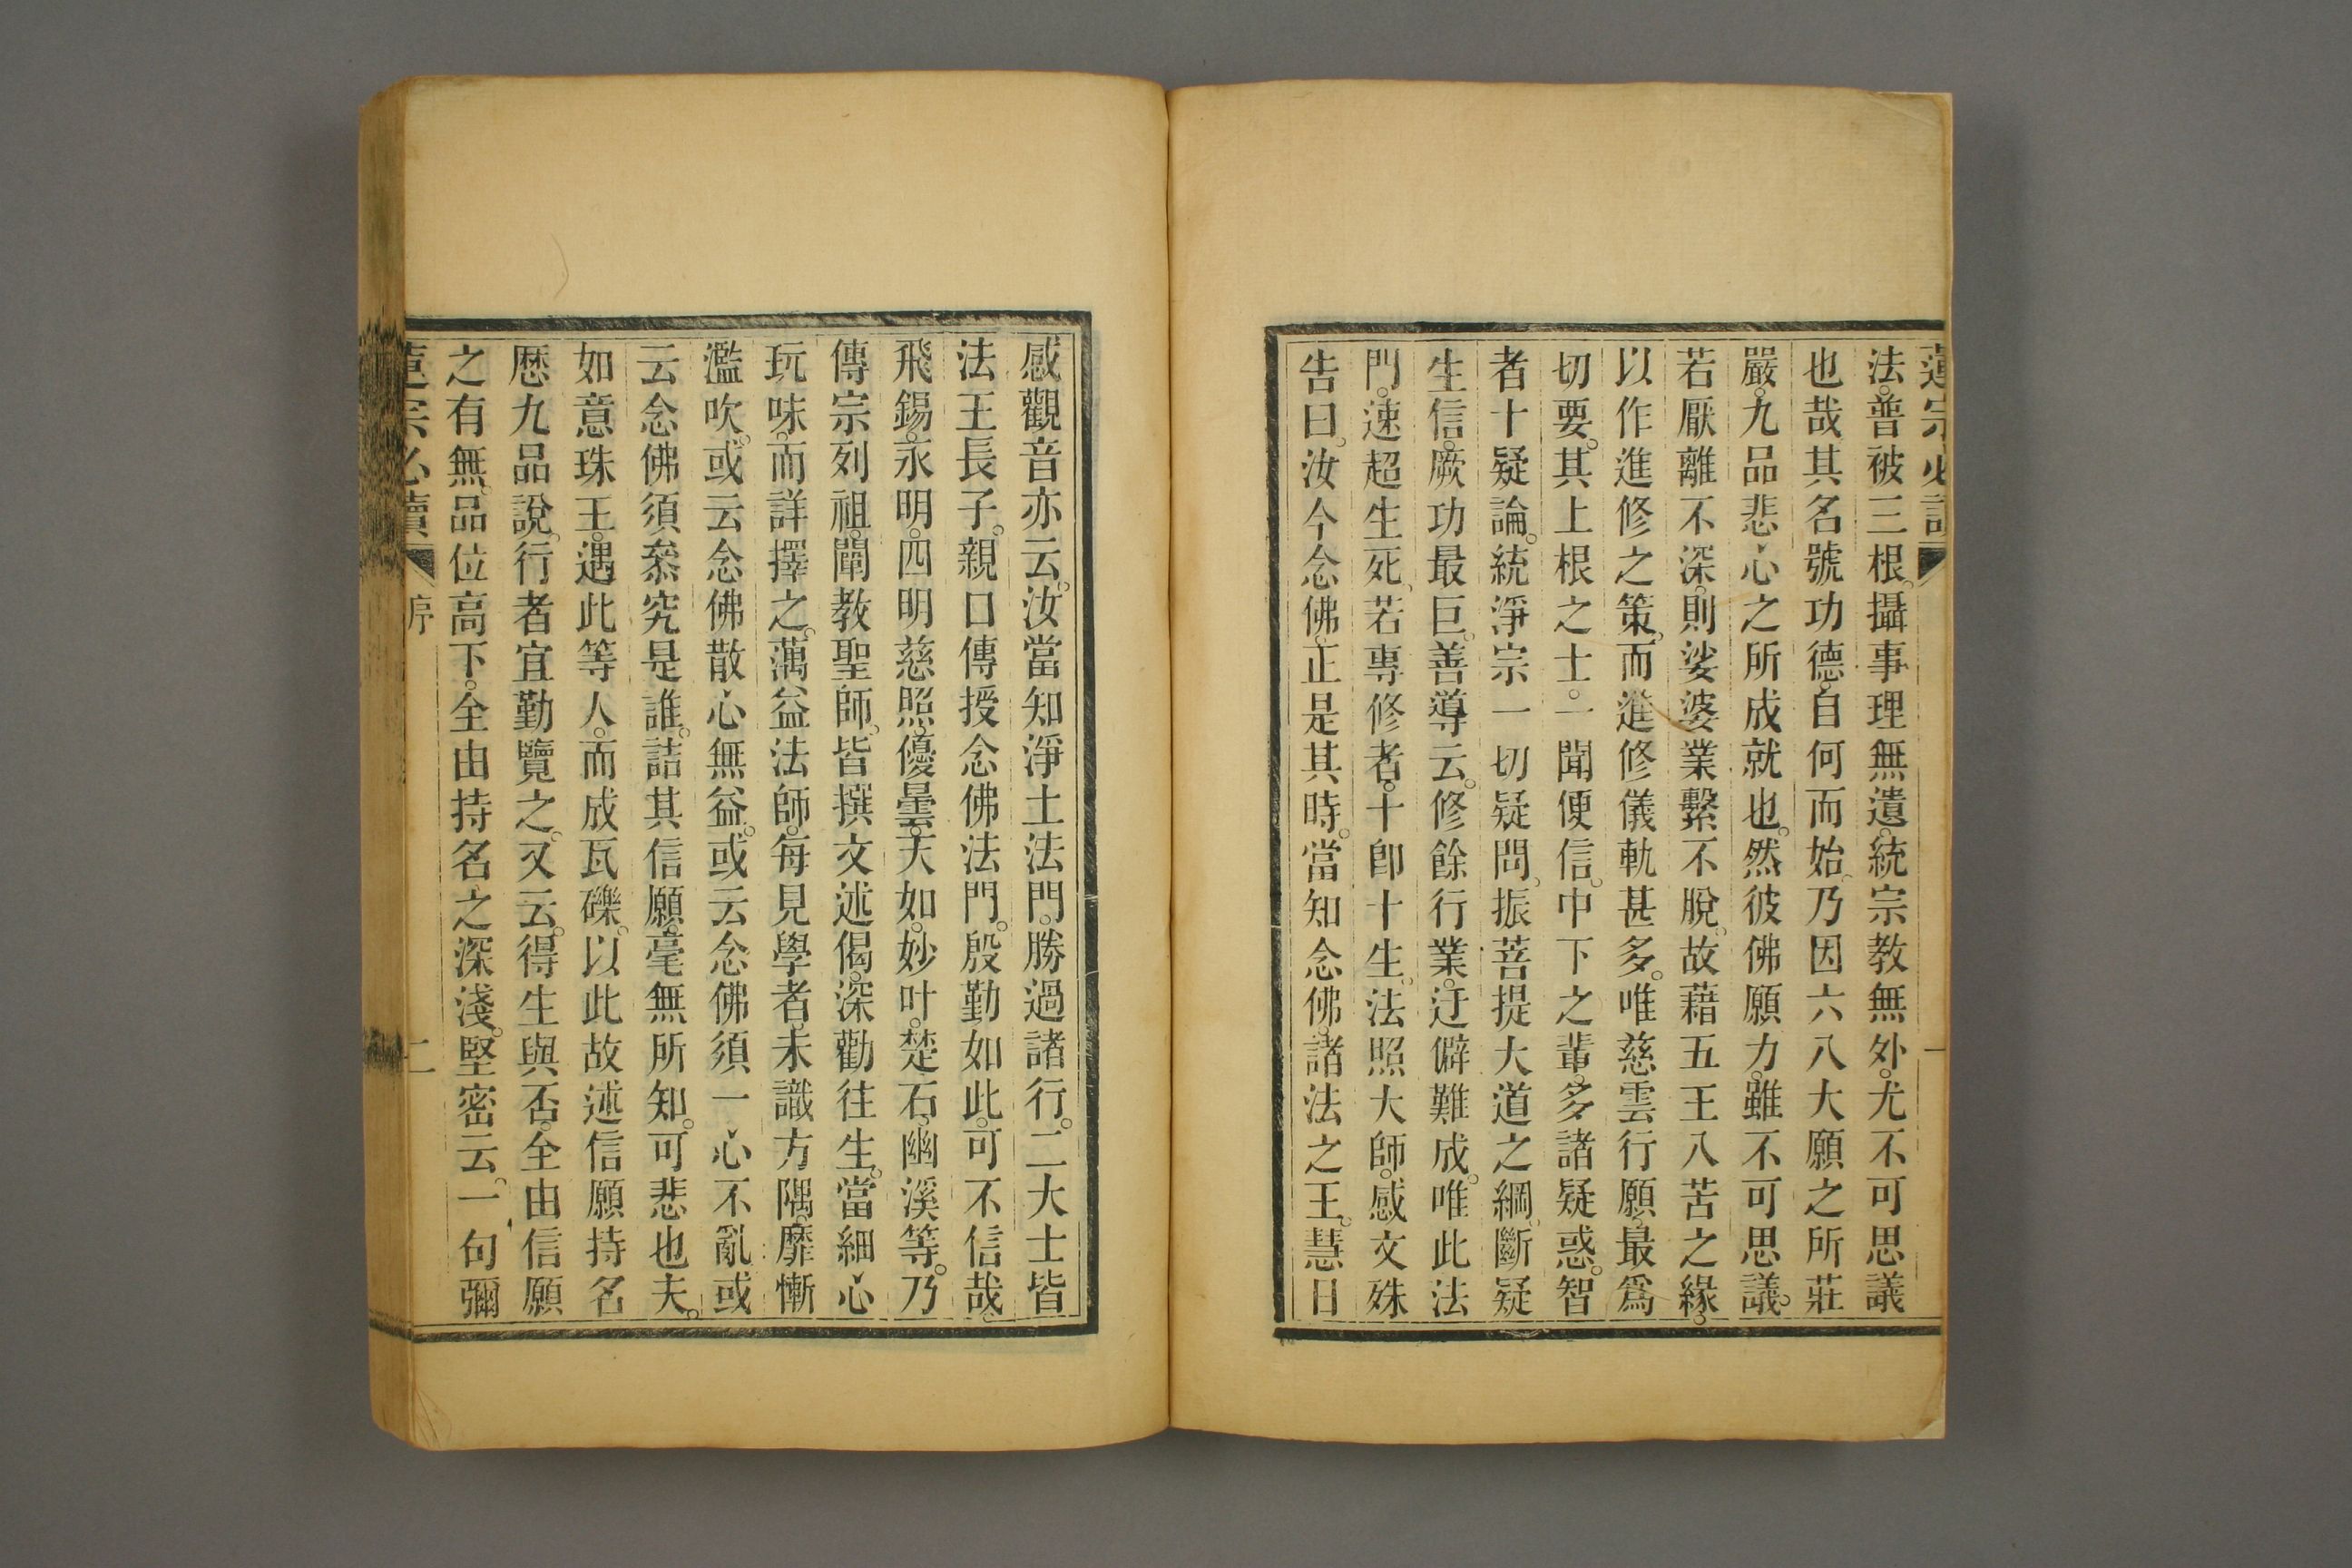 蓮宗必讀 一
法。普被三根。攝事理無遺。統宗教無外。尤不可思議
也哉其名號功德。自何而始。乃因六八大願之所莊
嚴。九品悲心之所成就也。然彼佛願力。雖不可思議。
若厭離不深。則娑婆業繫不脫。故藉五王八苦之緣。
以作進修之策。而進修儀軌甚多。唯慈雲行願。最爲
切要。其上根之士。一聞便信。中下之輩。多諸疑惑。智
者十疑論。統淨宗一切疑問。振菩提大道之綱。斷疑
生信。厥功最巨。善導云。修餘行業。迂僻難成。唯此法
門。速超生死。若專修者。十卽十生。法照大師。感文殊
告曰。汝今念佛。正是其時。當知念佛。諸法之王。慧日
感觀音亦云。汝當知淨土法門。勝過諸行。二大士皆
法王長子。親口傳授念佛法門。殷勤如此。可不信哉。
飛錫。永明。四明慈照。優曇。天如。妙叶。楚石。幽溪等。乃
傳宗列祖。闡教聖師。皆撰文述偈。深勸往生。當細心
玩味。而詳擇之。蕅益法師。每見學者。未識方隅。靡慚
濫吹。或云念佛散心無益。或云念佛須一心不亂或
云念佛須叅究是誰。詰其信願。毫無所知。可悲也夫。
如意珠王。遇此等人。而成瓦礫。以此故述信願持名
歷九品說。行者宜勤覽之。又云。得生與否。全由信願
之有無。品位高下。全由持名之深淺。堅密云。一句彌
蓮宗必讀 序 二